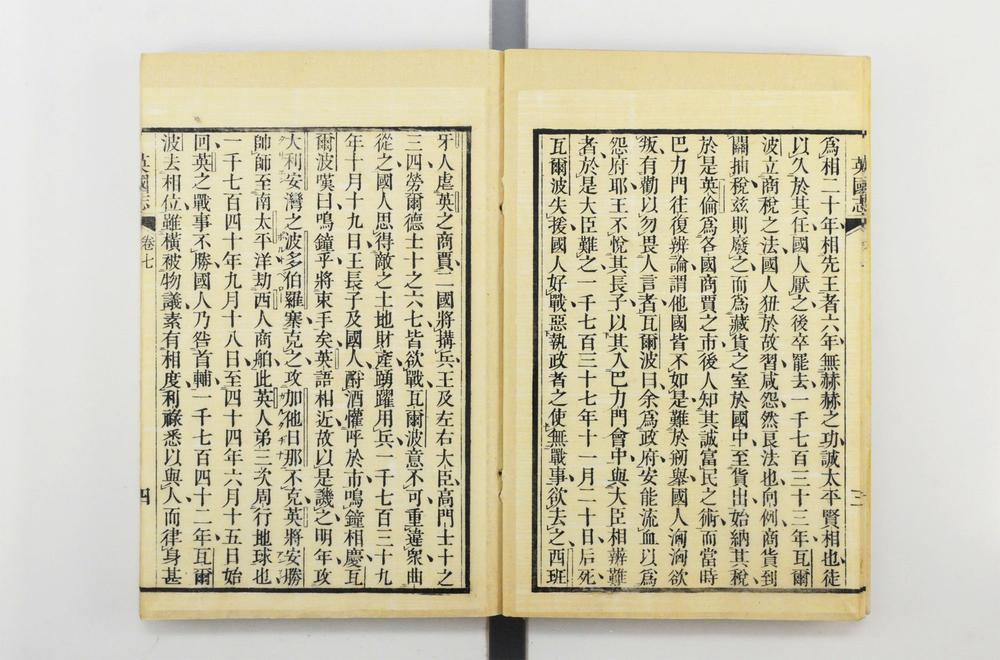 爲相二十年相先王者六年無赫赫之功誠太平賢相也徒
以久於其任國人厭之後卒罷去一千七百三十三年瓦爾
波立商稅之法國人狃於故習咸怨然良法也向例商貨到
關抽稅兹則廢之而爲藏貨之室於國中至貨出始納其稅
於是英倫爲各國商賈之市後人知其誠富民之術而當時
巴力門往復辨論謂他國皆不如是難於剏舉國人洶洶欲
叛有勸以勿畏人言者瓦爾波曰余爲政府安能流血以爲
怨府耶王不悅其長子以其人巴力門會中與大臣相辨難
者於是大臣難之一千七百三十七年十一月二十日后死
瓦爾波失援國人好戰惡執政者之使無戰事欲去之西班
英國志
三
牙人虐英之商賈二國將搆兵王及左右大臣高門士十之
三四勞爾德士十之六七皆欲戰瓦爾波意不可重違衆曲
從之國人思得敵之土地財產踴躍用兵一千七百三十九
年十月十九日王長子及國人酹酒懽呼於市鳴鐘相慶瓦
爾波嘆曰鳴鐘乎將束手矣英語相近故以是譏之明年攻
大利安灣之波多伯羅塞克之攻加他日那不克英將安勝
帥師至南太平洋劫西人商舶此英人弟三次周行地球也
一千七百四十年九月十八日至四十四年六月十五日始
回英之戰事不勝國人乃咎首輔一千七百四十二年瓦爾
波去相位雖橫被物議素有相度利祿悉以與人而律身甚
英國志
卷七
四